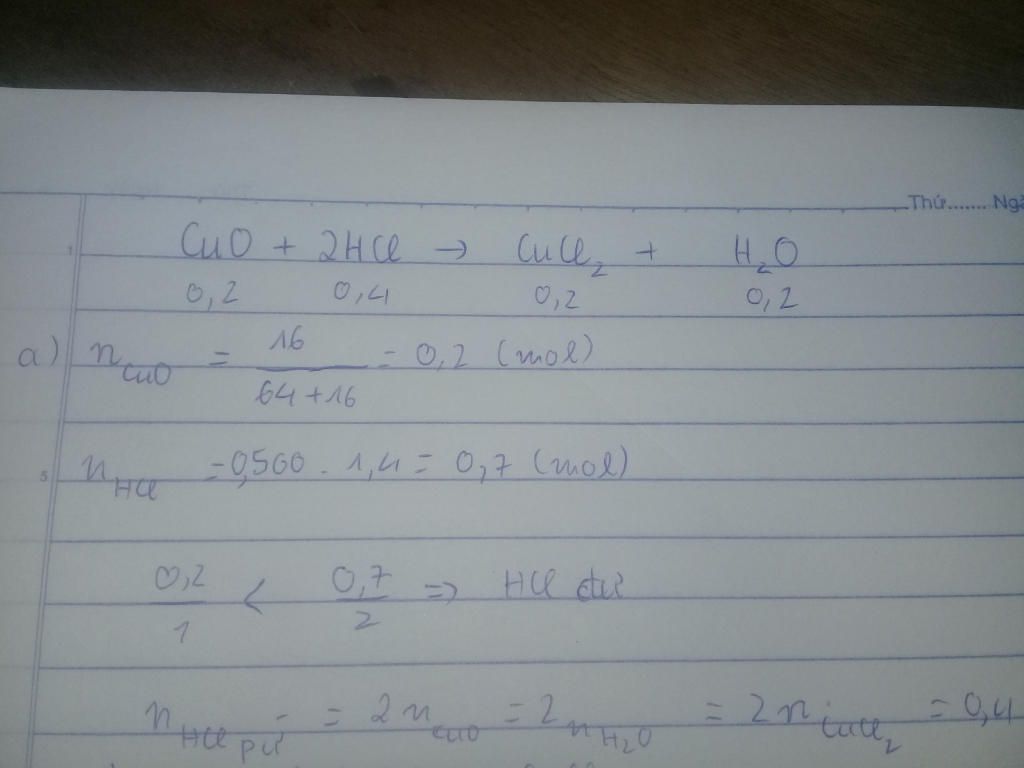 Thứ....... Ngà
CuO + 2HCl → CuCl₂ + H₂O
0,2 0,4 0,2 0,2
a) n_CuO = 16 / (64+16) = 0,2 (mol)
5 n_HCl = 0,500 . 1,4 = 0,7 (mol)
0,2/1 < 0,7/2 => HCl dư
n_HCl pư = 2n_CuO = 2n_H₂O = 2n_CuCl₂ = 0,4